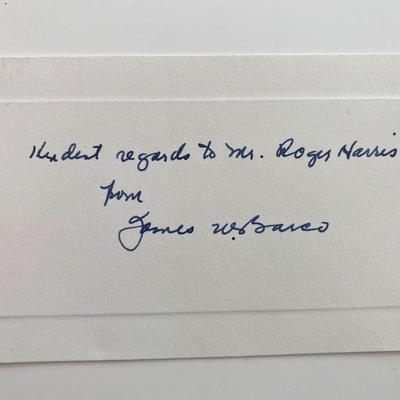 Kindest regards to Mr. Roger Harris
from
James W. Barco